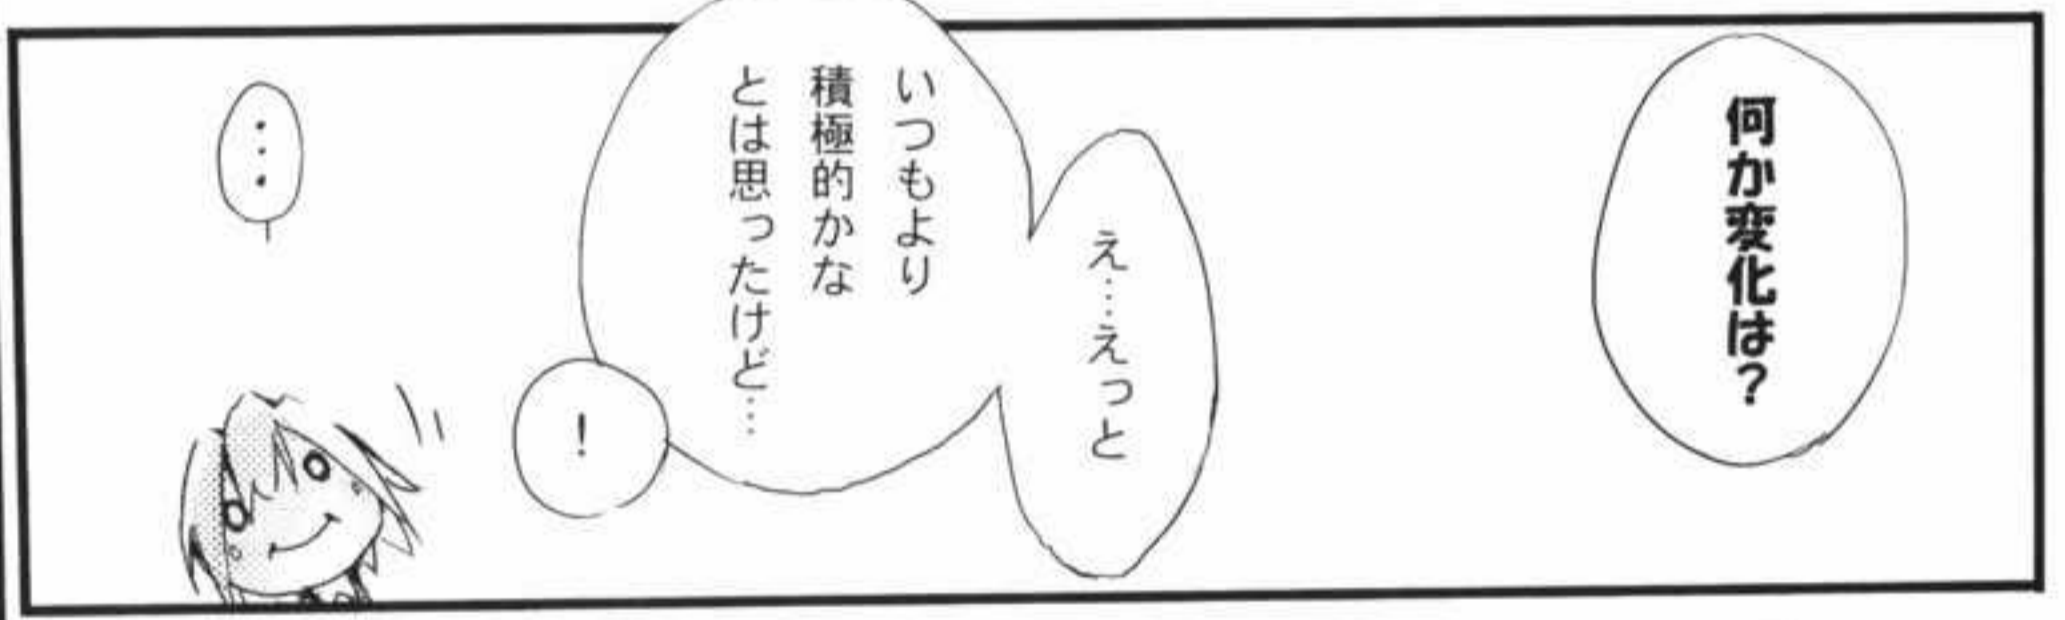 何か変化は？
え…えっと
いつもより
積極的かな
とは思ったけど…
！
…